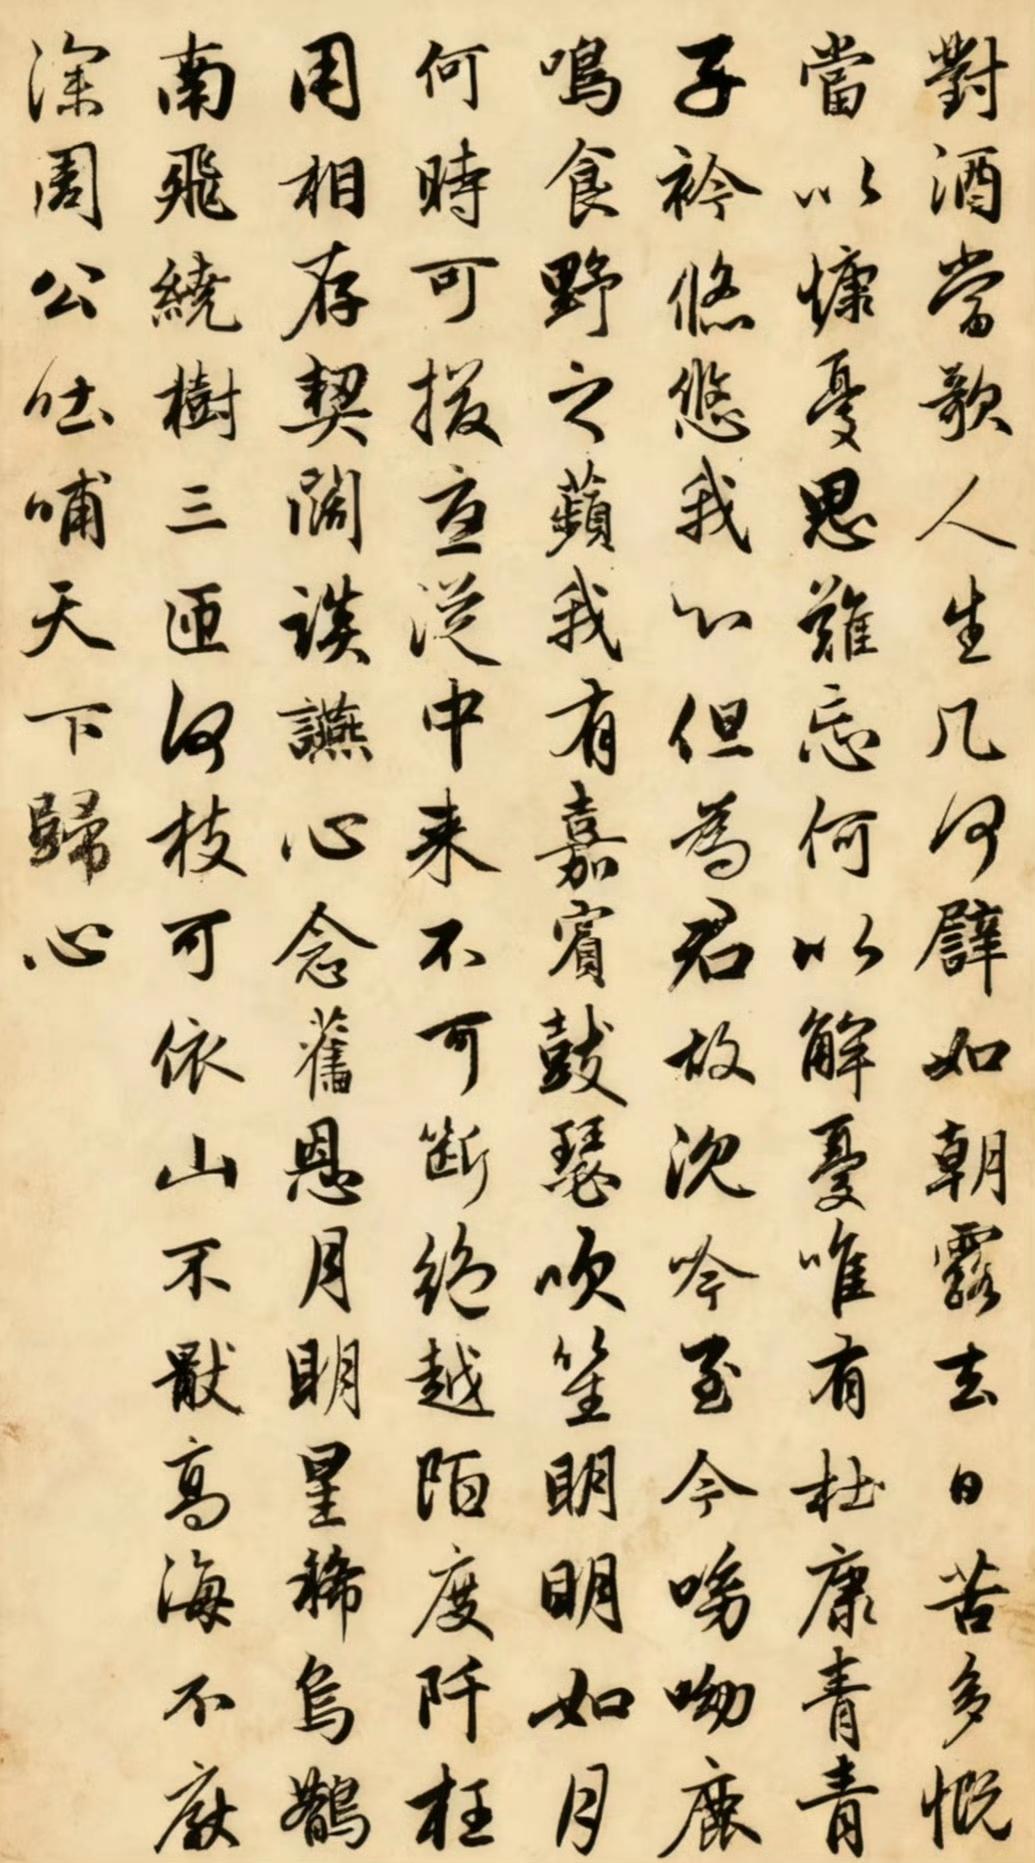 對酒當歌人生几何譬如朝露去日苦多慨
當以慷憂思難忘何以解憂唯有杜康青青
子衿悠悠我心但為君故沈吟至今呦呦鹿
鳴食野之蘋我有嘉賓鼓瑟吹笙明明如月
何時可掇憂從中来不可斷絕越陌度阡枉
用相存契闊談讌心念舊恩月明星稀烏鵲
南飛繞樹三匝何枝可依山不厭高海不厭
深周公吐哺天下歸心